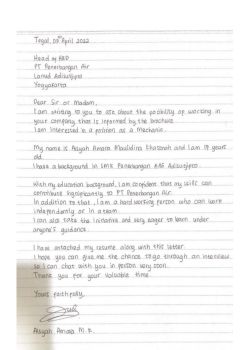 Tegal, 09th April 2022
Head of HRD
PT Penerbangan Air
Lanud Adisutjipto
Yogyakarta
Dear Sir or Madam,
I am writing to you to ask about the possibility of working in
your company that is informed by the brochure
I am interested in a position as a Mechanic.
My name is Aisyah Amara Maulidina Khasanah and I am 19 years
old.
I have a background in SMK Penerbangan AAG Adisutjipto.
With my education background, I am confident that my skill can
contribute significantly to PT Penerbangan Air.
In addition to that, I am a hard working person who can work
independently or in a team
I can also take the initiative and very eager to learn under
anyone's guidance.
I have attached my resume along with this letter.
I hope you can give me the chance to go through an interview
so I can chat with you in person very soon.
Thank you for your valuable time.
Yours faithfully,
Aisyah Amara M. K.